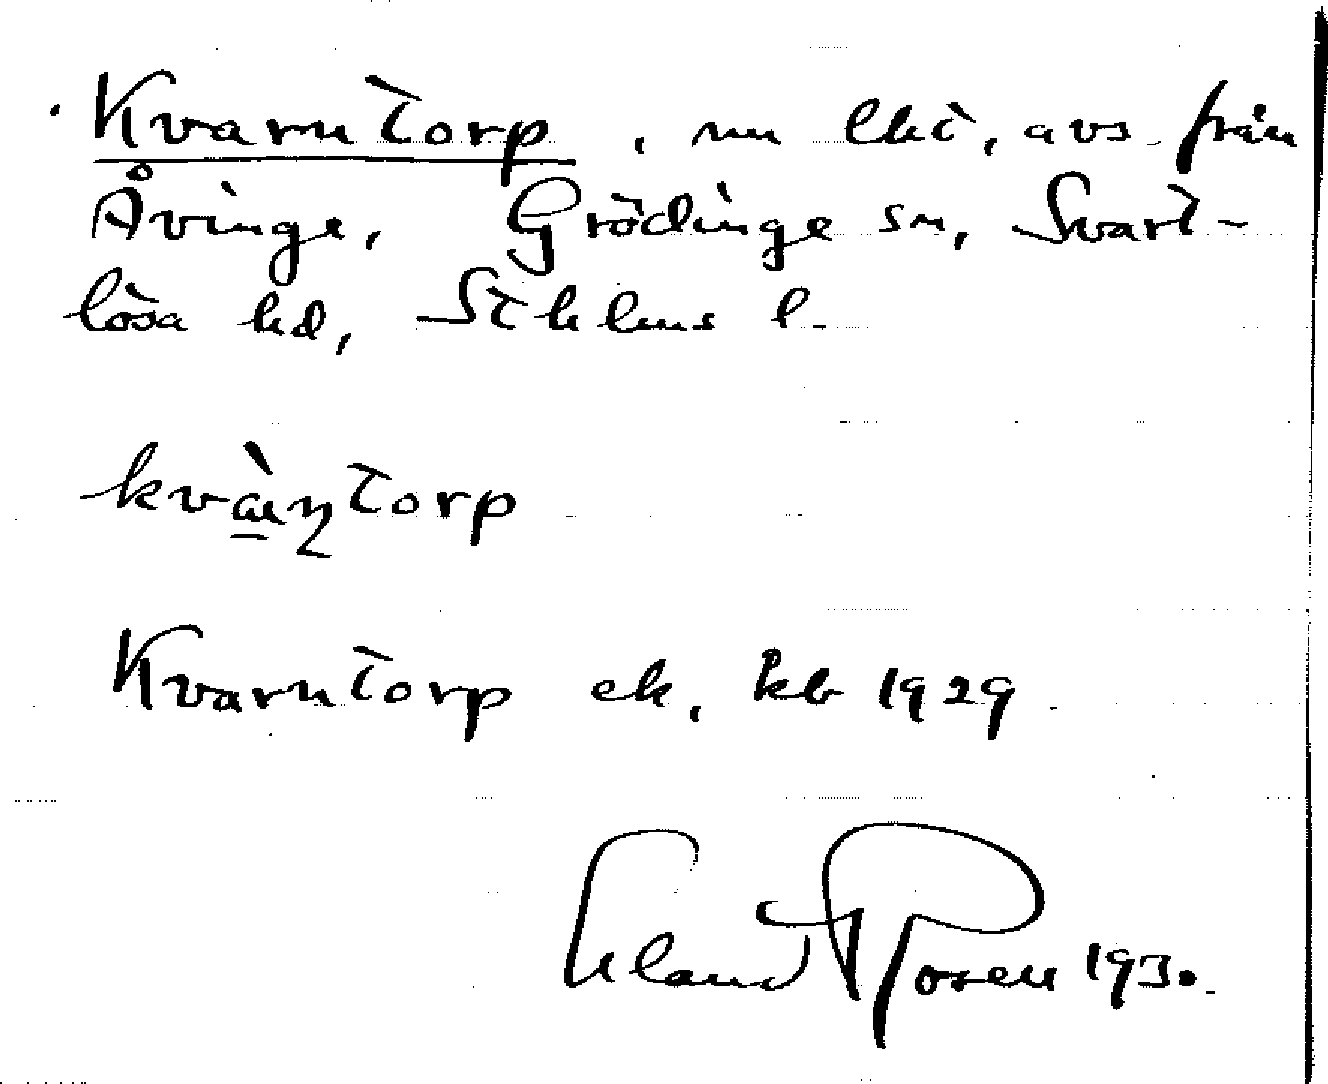 Kvarntorp, nu lht, avs. från
Åvinge, Grödinge sn, Svart-
lösa hd, Sthlms l.
kvàɳtorp
Kvarntorp ek, kb 1929.
Rosell 1930.